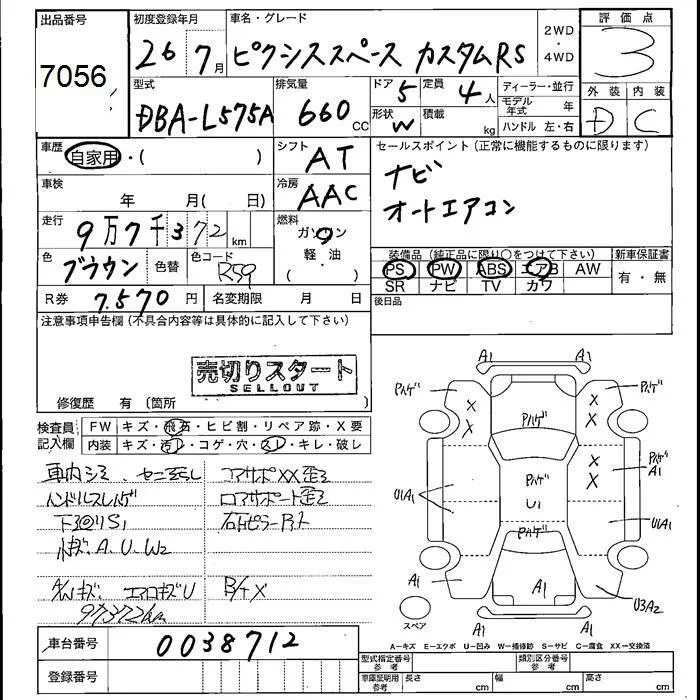 出品番号
7056
初度登録年月
26 7月
車名・グレード
ピクシススペース カスタムRS
2WD
・
4WD
評価点
3
型式
DBA-L575A
排気量
660 CC
ドア 5
定員 4人
形状 W
積載 kg
ディーラー・並行
モデル年式 年
ハンドル 左・右
外装 内装
D C
車歴
自家用・( )
シフト
AT
セールスポイント(正常に機能するものに限ります)
ナビ
オートエアコン
車検
年 月( 日)
冷房
AAC
走行
9万7千372km
燃料
ガソリン
軽油
( )
色
ブラウン
色替
色コード
R59
装備品(純正品に限り○をつけて下さい)
PS PW ABS エアB AW
SR ナビ TV カワ
新車保証書
有・無
R券 7.570円
名変期限 月 日
後日品
注意事項申告欄(不具合内容等は具体的に記入して下さい)
売切りスタート
SELLOUT
修復歴 有 (箇所 )
検査員記入欄
FW キズ・飛石・ヒビ割・リペア跡・X要
内装 キズ・汚レ・コゲ・穴・スレ・キレ・破レ
車内シミ
下廻りS1
小キズ.A.U.W2
97372km
コアサポXX歪ミ
ロアサポート歪ミ
エアロキズU
A1 A1
Pハゲ Pハゲ
X X
X X
Pハゲ
Pハゲ
A1
X
X
Pハゲ
U1
U1A1 U1A1
Pハゲ
A1 A1
U3A2
A1 A1
スペア
A-キズ E-エクボ U-凹み W-補修跡 S-サビ C-腐食 XX-交換済
車台番号
0038712
登録番号
型式指定番号 参考
類別区分番号 参考
車庫証明用 参考
長さ cm 幅 cm 高さ cm